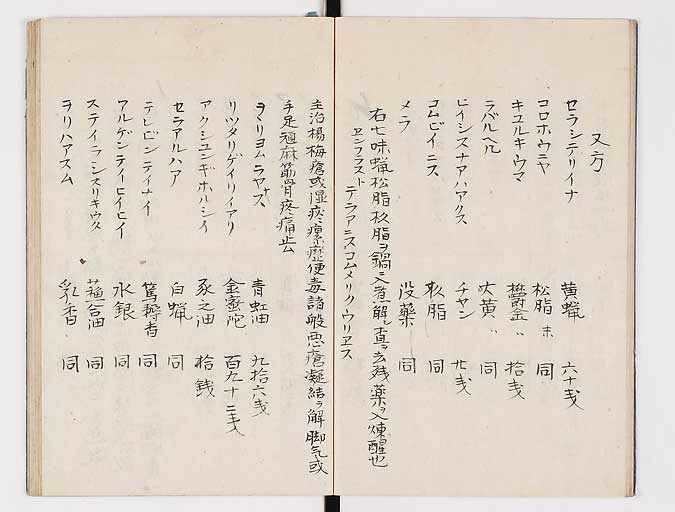 又方
セラシテリイナ 黄蝋 六十戔
コロホウニヤ 松脂末 同
キユルキウマ 欝金〃 拾戔
ラバルヘル 大黄〃 同
ヒイシスナアハアクス チヤン 廿戔
コムビイニス 杦脂 同
メラ 没薬 同
右七味蝋松脂杦脂ヲ鍋ニ入煮解シ直ニ去残薬ヲ入煉醒也
ヱンフラスト テラアニスコムメリクウリヱス
主治楊梅瘡或湿痰瘰癧便毒諸般悪瘡凝結ヲ解脚气或
手足麻筋骨疼痛止ム
ヲヽリヨムラヤス 青蛙油 九拾六戔
リツタリゲイリイアリ 金蜜陀 百九十二戔
アクシユンギホルシイ 豕之油 拾銭
セラアルハア 白蝋 同
テレビンテイナイ 篤耨香 同
アルゲンテイヒイヒイ 水銀 同
ステイラシスリキウタ 蘓合油 同
ヲリハアスム 乳香 同